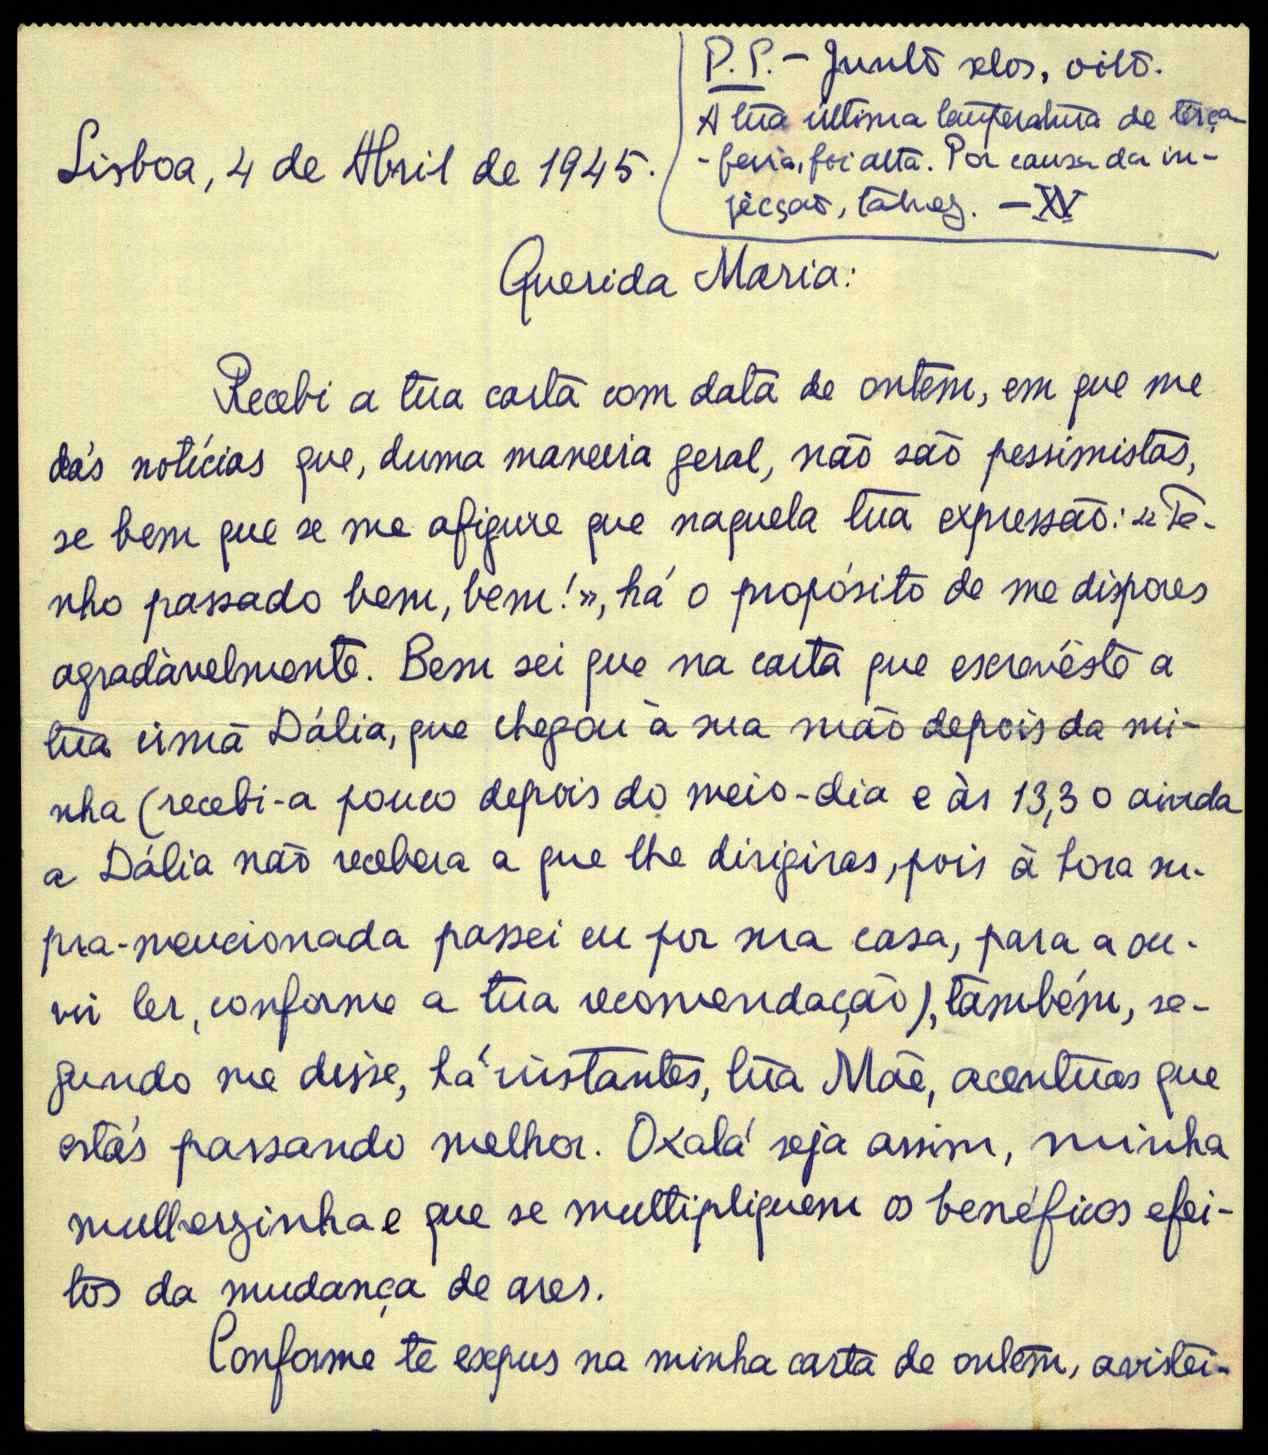 P.P. - Junto selos, oito.
A tua última temperatura de terça
-feira, foi alta. Por causa da in-
jècção, talvez. - XV
Lisboa, 4 de Abril de 1945.
Querida Maria:
Recebi a tua carta com data de ontem, em que me
dás notícias que, duma maneira geral, não são pessimistas,
se bem que se me afigure que naquela tua expressão: «Te-
nho passado bem, bem!», há o propósito de me dispores
agradàvelmente. Bem sei que na carta que escrevêste a
tua irmã Dália, que chegou à sua mão depois da mi-
nha (recebi-a pouco depois do meio-dia e às 13,30 ainda
a Dália não recebera a que lhe dirigiras, pois à hora su-
pra-mencionada passei eu por sua casa, para a ou-
vir ler, conforme a tua recomendação), também, se-
gundo me disse, há instantes, tua Mãe, acentuas que
estás passando melhor. Oxalá seja assim, minha
mulherzinha e que se multipliquem os benéficos efei-
tos da mudança de ares.
Conforme te expus na minha carta de ontem, avistei-